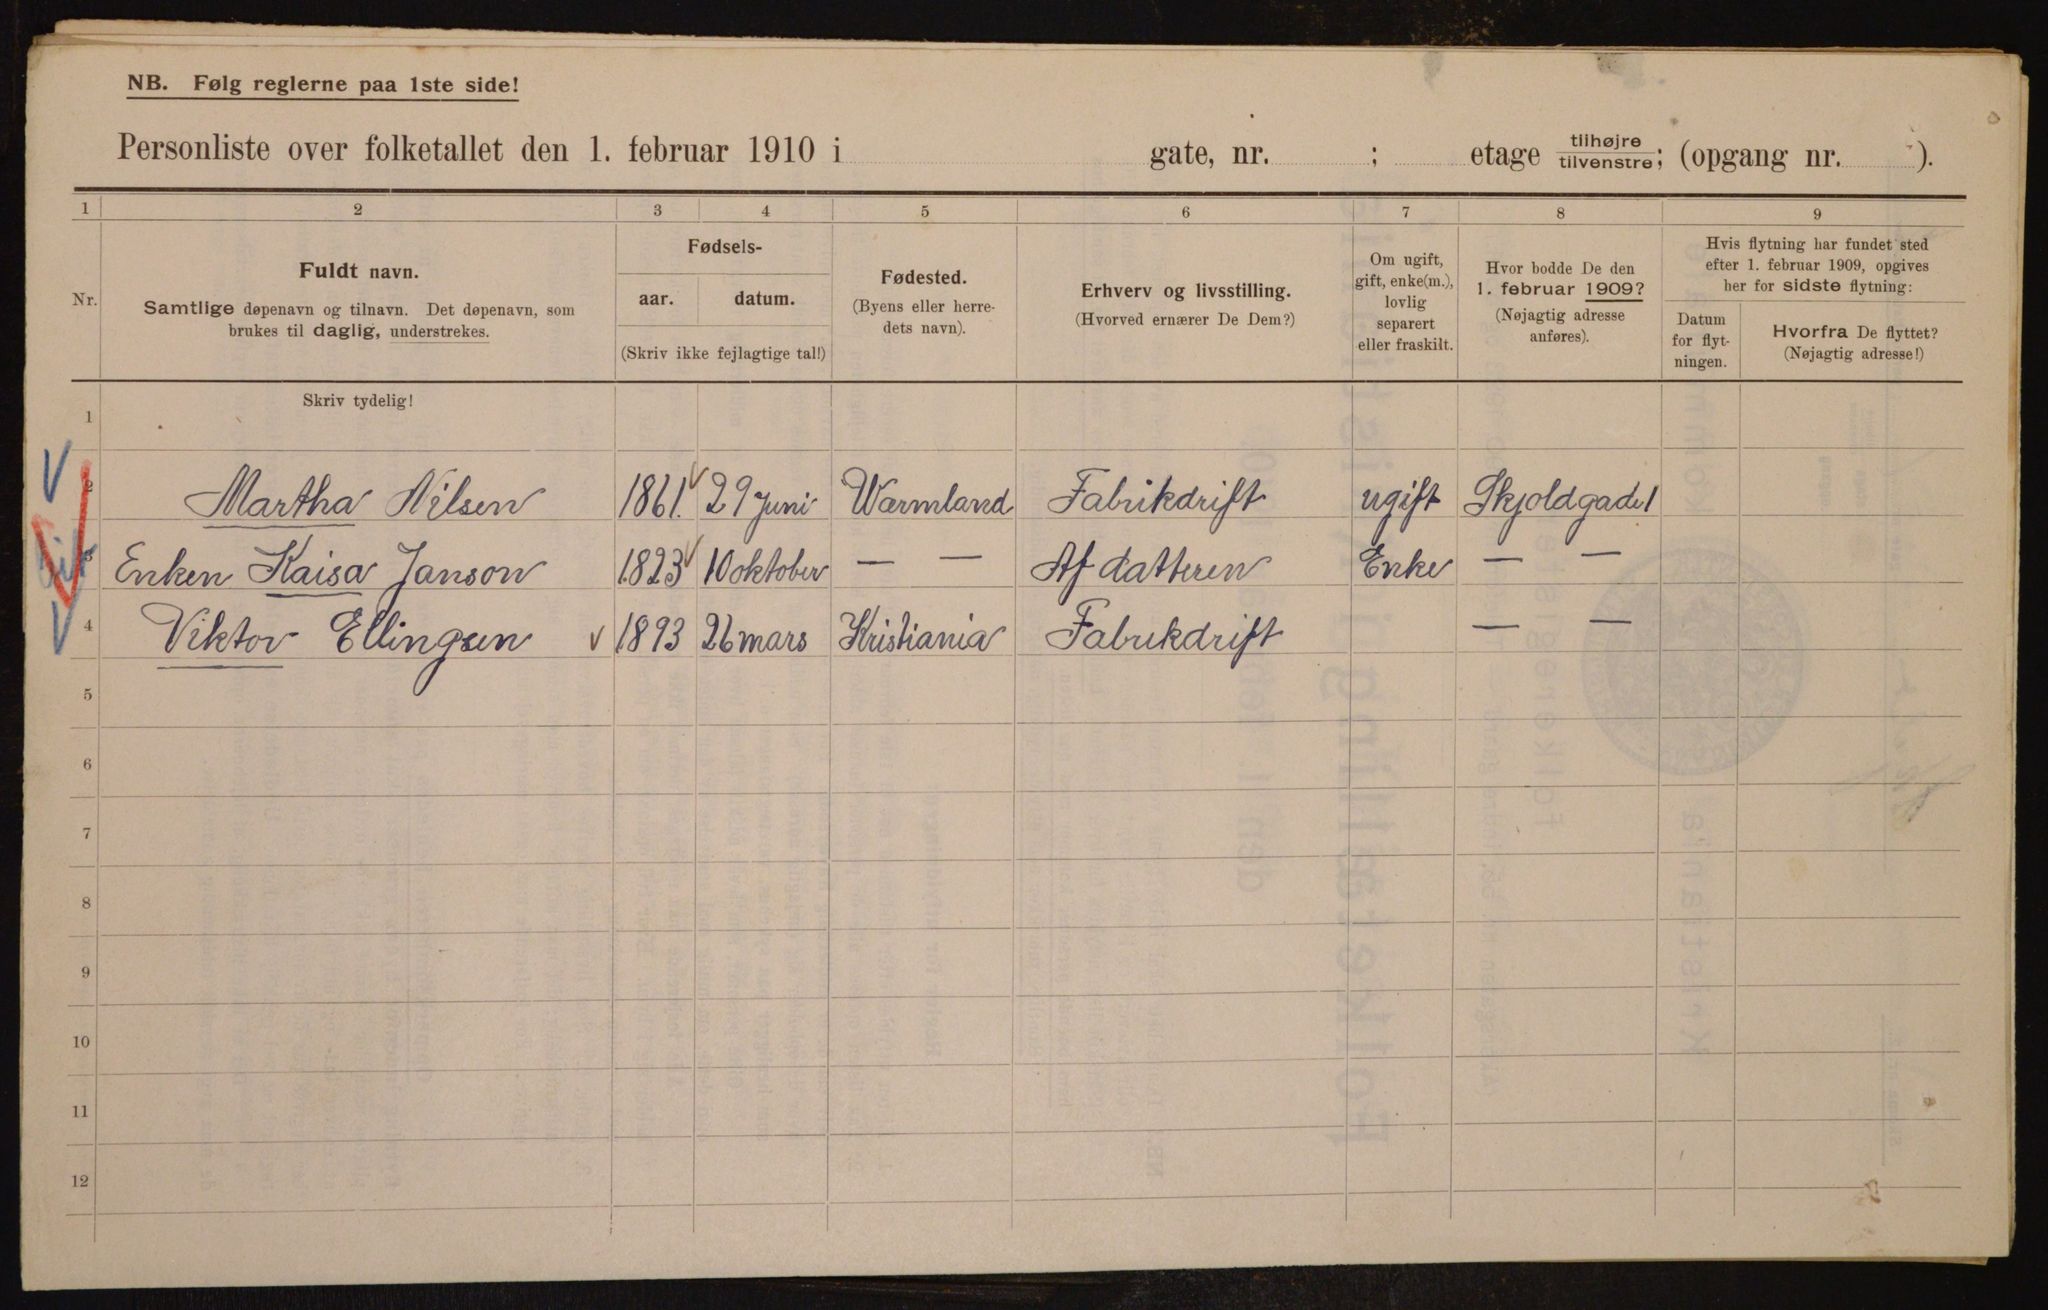 NB. Følg reglerne paa 1ste side!
Personliste over folketallet den 1. februar 1910 i gate, nr. ; etage tilhøjre/tilvenstre; (opgang nr. ).
1 2 3 4 5 6 7 8 9
Nr.
Fuldt navn.
Samtlige døpenavn og tilnavn. Det døpenavn, som
brukes til daglig, understrekes.
Fødsels-
aar. datum.
(Skriv ikke fejlagtige tal!)
Fødested.
(Byens eller herre-
dets navn).
Erhverv og livsstilling.
(Hvorved ernærer De Dem?)
Om ugift,
gift, enke(m.),
lovlig
separert
eller fraskilt.
Hvor bodde De den
1. februar 1909?
(Nøjagtig adresse
anføres).
Hvis flytning har fundet sted
efter 1. februar 1909, opgives
her for sidste flytning:
Datum
for flyt-
ningen.
Hvorfra De flyttet?
(Nøjagtig adresse!)
Skriv tydelig!
1
2 Martha Nilsen 1861. 29 juni Wærmland Fabrikdrift ugift Skjoldgade 1
3 Enken Kaisa Janson 1823 10 oktober — — Af datteren Enke — —
4 Viktor Ellingsen 1893 26 mars Kristiania Fabrikdrift — —
5
6
7
8
9
10
11
12